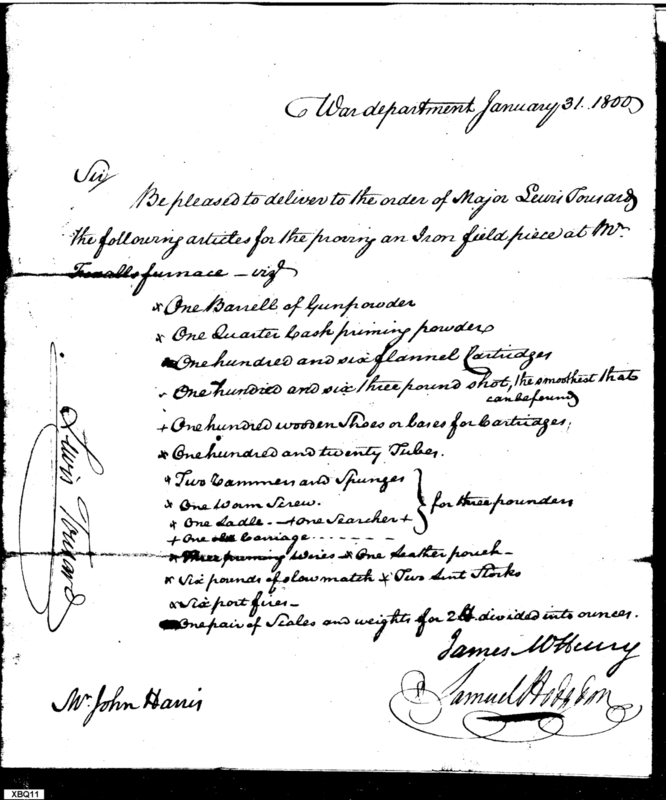 War department January 31. 1800
Sir
Be pleased to deliver to the order of Major Lewis Tousard
the following articles for the proving an Iron field piece at Mr.
furnace – viz
x One Barrell of Gunpowder
x One Quarter Cask priming powder
One hundred and six flannel Cartridges
One hundred and six three pound shot, the smoothest that
can be found
+ One hundred wooden Shoes or Cases for Cartridges;
x One hundred and twenty Tubes.
x Two Rammers and Spunges
x One Worm Screw.
x One Ladle – + One Searcher +
for three pounders
+ One Carriage
x Three priming Wires x One Leather pouch –
x Six pounds of slow match x Two Lint Stocks
x Six port fires –
One pair of Scales and weights for 2 lb divided into ounces.
James McHenry
Samuel Hodgdon
Mr. John Harris
Lewis Tousard
XBQ11